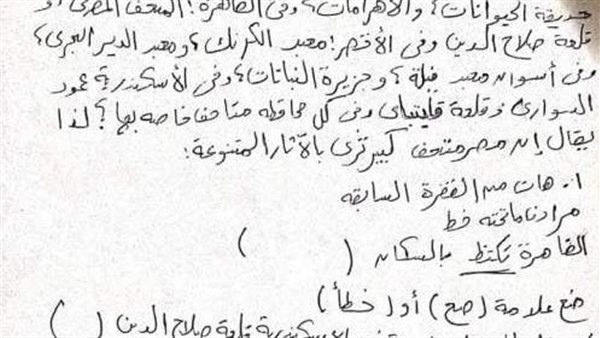 حديقة الحيوانات؟ والأهرامات؟ وفى القاهرة: المتحف المصرى او
قلعة صلاح الدين وفى الأقصر: معبد الكرنك؟ ومعبد الدير البحرى؟
وفى أسوان معبد فيلة؟ وجزيرة النباتات؟ وفى الأسكندرية عمود
السوارى وقلعة قايتباى وفى كل محافظه متاحف خاصه بها؟ لذا
يقال إن مصر متحف كبير ثرى بالآثار المتنوعة:
١- هات من الفقرة السابقه
مرادف ماتحته خط
القاهرة تكتظ بالسكان ( )
ضع علامة (صح) أو (خطأ)
قلعة صلاح الدين ( )